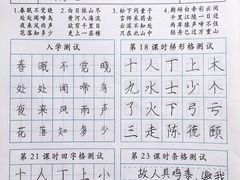 1.春眠不觉晓
处处闻啼鸟
夜来风雨声
花落知多少
2.白日依山尽
黄河入海流
欲穷千里目
更上一层楼
3.松下问童子
言师采药去
只在此山中
云深不知处
4.朝辞白帝彩云间
千里江陵一日还
两岸猿声啼不住
轻舟已过万重山
入学测试
春眠不觉晓
处处闻啼鸟
夜来风雨声
花落知多少
第18课时梯形格测试
十人丁上木
九水士少个
了火下弓
三走陈德颐
第21课时田字格测试
十人丁上小
第23课时条格测试
故人具鸡黍 邀我